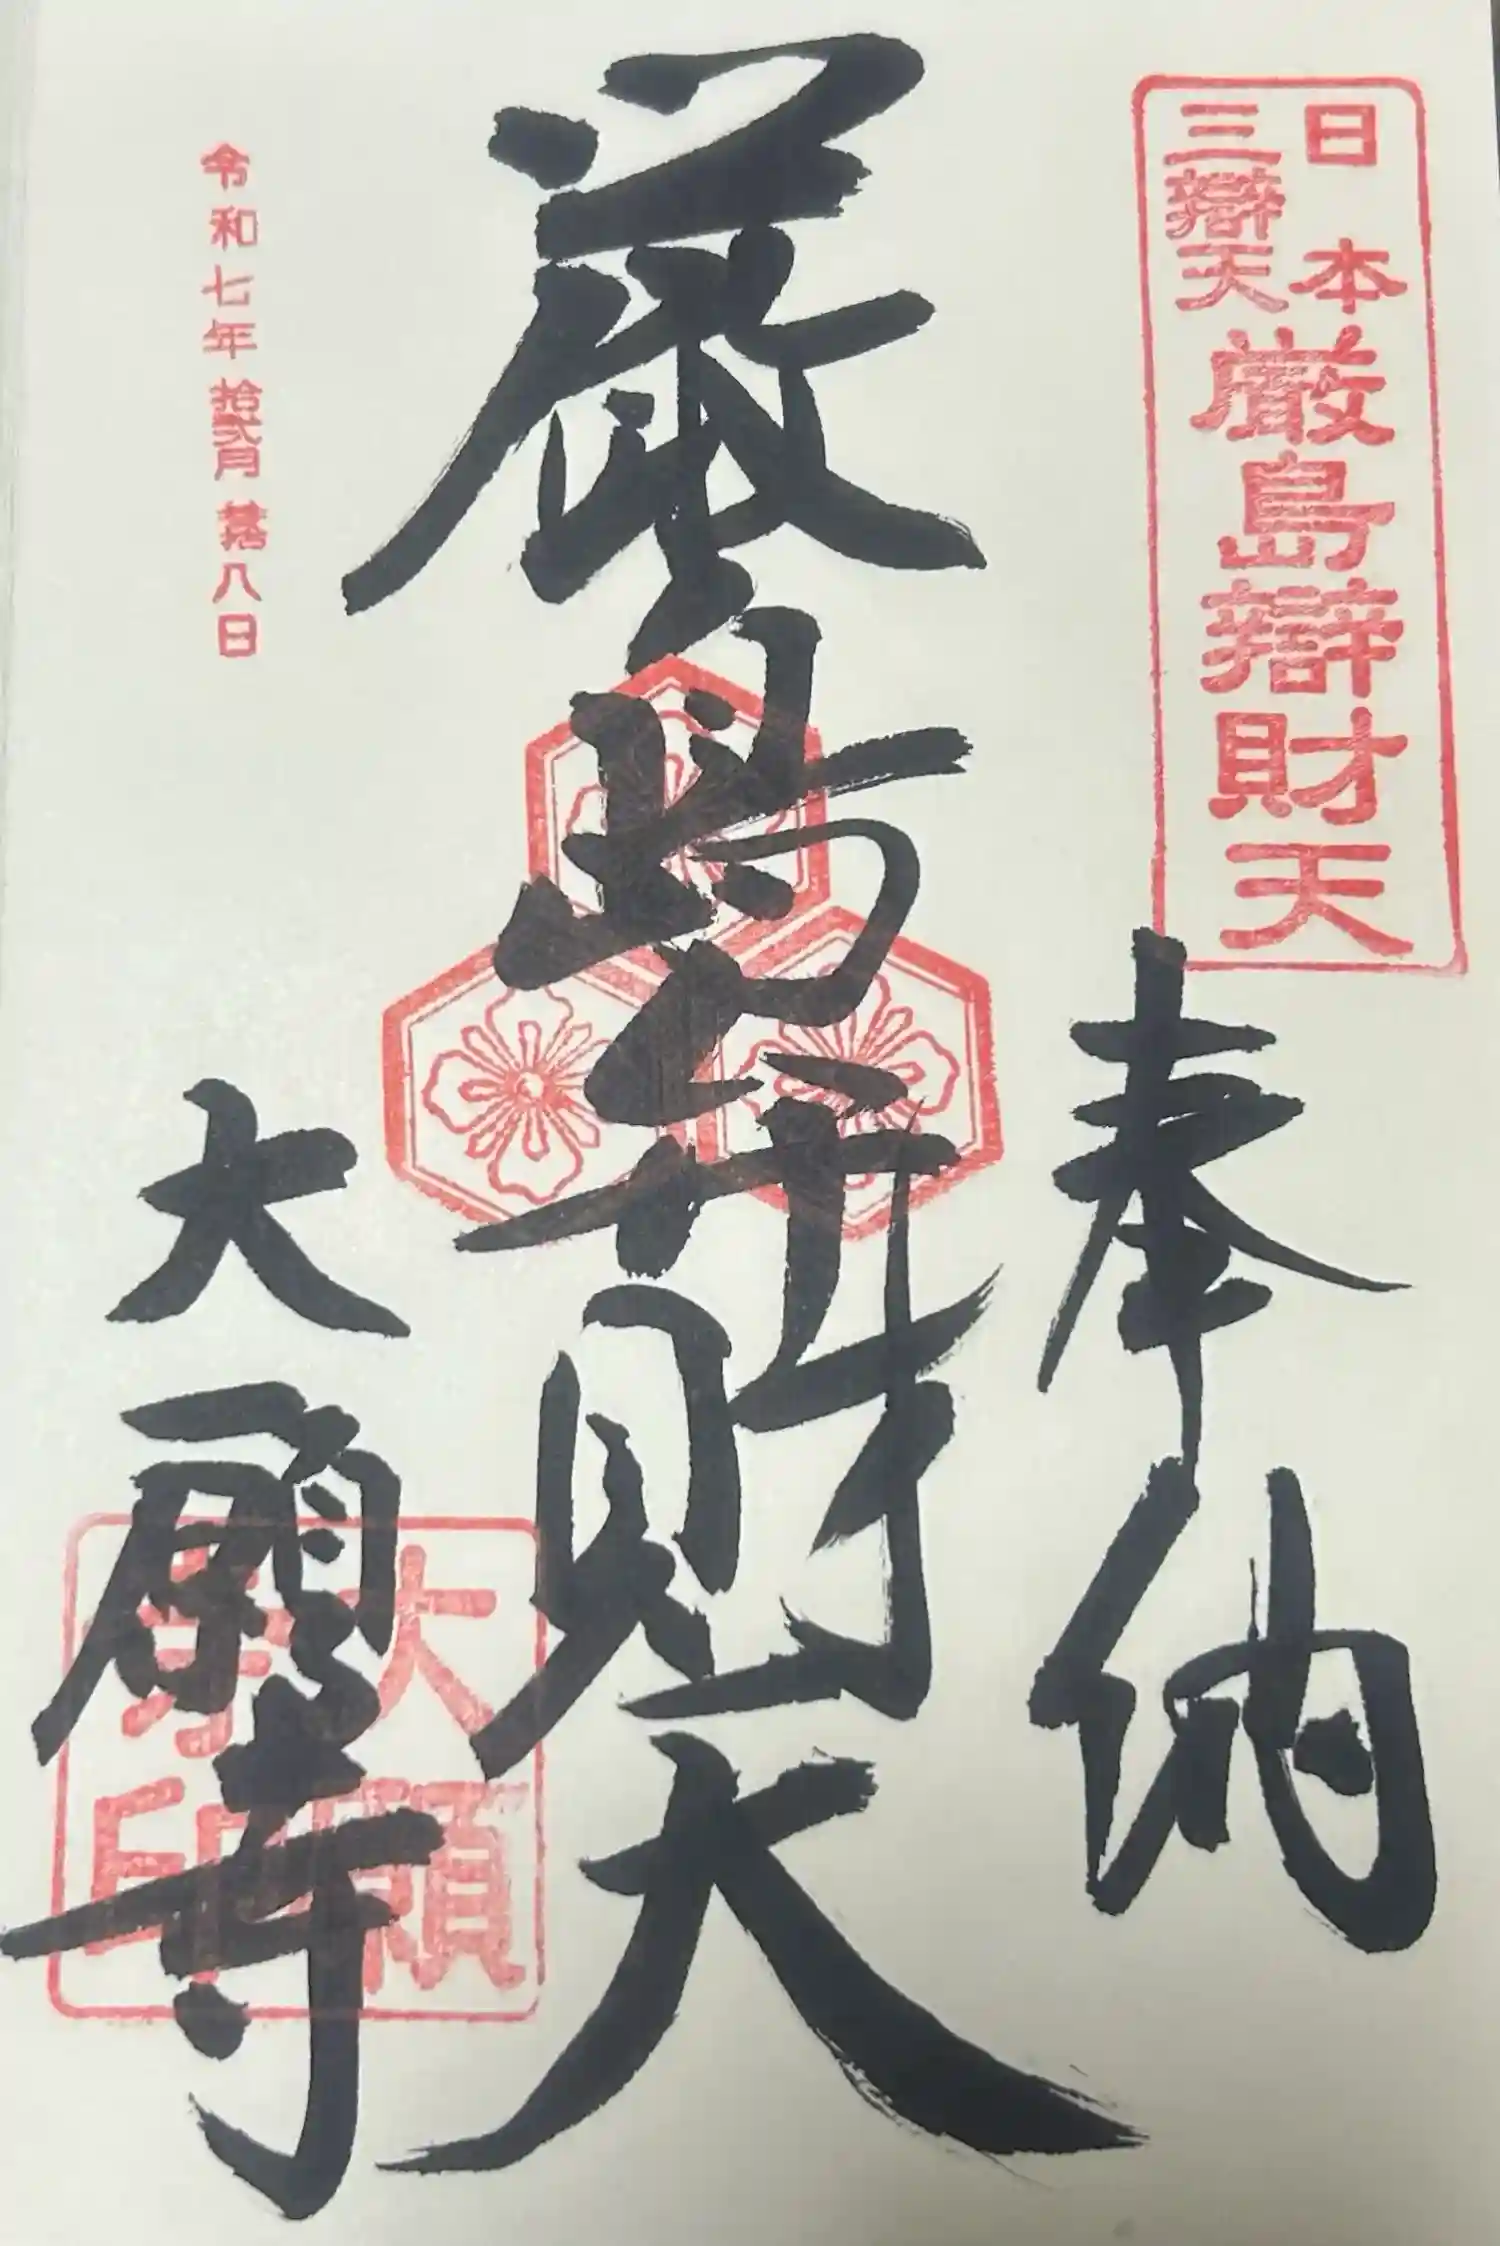 日本
三辯天
厳島辯財天
奉納
厳嶋弁財天
大願寺
大願
寺印
令和七年拾弐月弐拾八日